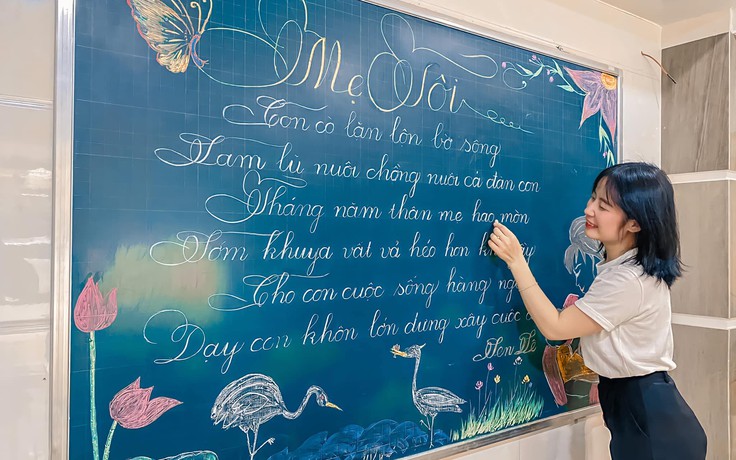 Mẹ Tôi
Con cò lặn lội bờ sông
Lam lũ nuôi chồng nuôi cả đàn con
Tháng năm thân mẹ hao mòn
Sớm khuya vất vả héo hon
Cho con cuộc sống hàng
Dạy con khôn lớn dựng xây cuộc